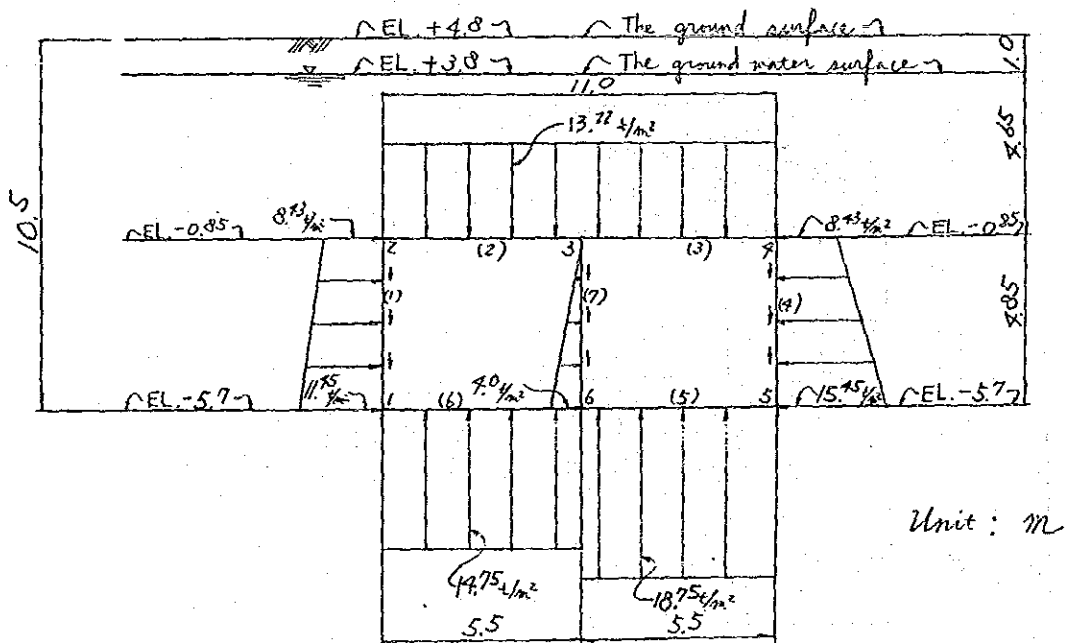 EL. +4.8
The ground surface
EL. +3.8
The ground water surface
1.0
11.0
13.22 t/m²
4.65
10.5
EL. -0.85
8.43 t/m²
8.43 t/m²
EL. -0.85
2
(2)
3
(3)
4
(1)
(7)
(4)
4.85
EL. -5.7
11.45 t/m²
1
(6)
4.0 t/m²
6
(5)
5
15.45 t/m²
EL. -5.7
14.75 t/m²
18.75 t/m²
5.5
5.5
Unit : m